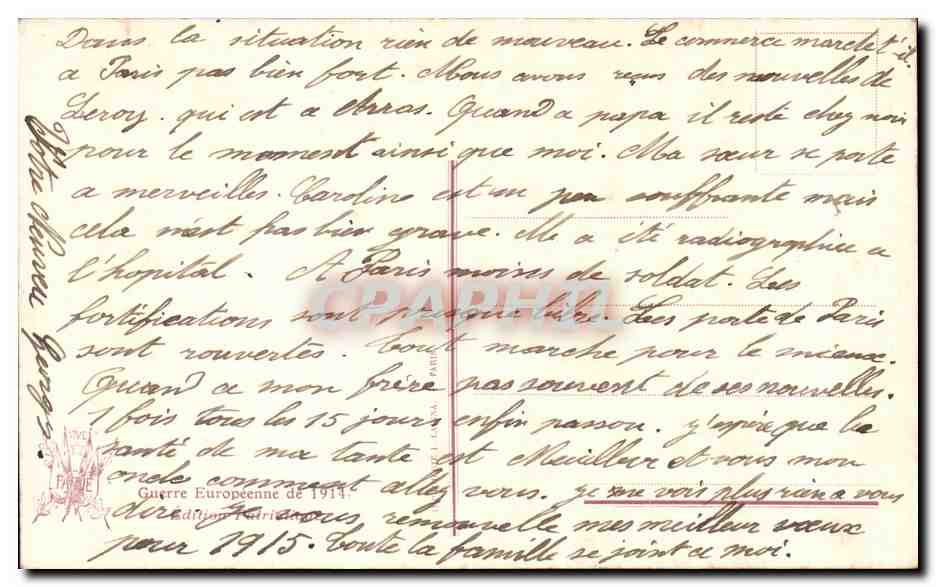 Dans la situation rien de nouveau. Le commerce marche t'-il
a Paris pas bien fort. Nous avons reçus des nouvelles de
Leroy. qui est a Arras. Quand a papa il reste chez nous
pour le moment ainsi que moi. Ma sœur se porte
a merveilles. Caroline est un peu souffrante mais
cela n'est pas bien grave. Elle a été radiographiée a
l'hopital. A Paris moins de soldat. Les
fortifications sont presque libre. Les porte de Paris
sont rouvertes. Tout marche pour le mieux.
Quand a mon frère pas souvent de ses nouvelles.
1 fois tous les 15 jours enfin passon. j'espère que la
santé de ma tante est Meilleur et vous mon
oncle comment allez vous. je ne vois plus rien a vous
dire je vous renouvelle mes meilleur vœux
pour 1915. Toute la famille se joint a moi.
Votre Neveu Georges
VIVE
LA
PATRIE
Guerre Européenne de 1914.
Edition Patriotique
PARIS
CPAPHIL